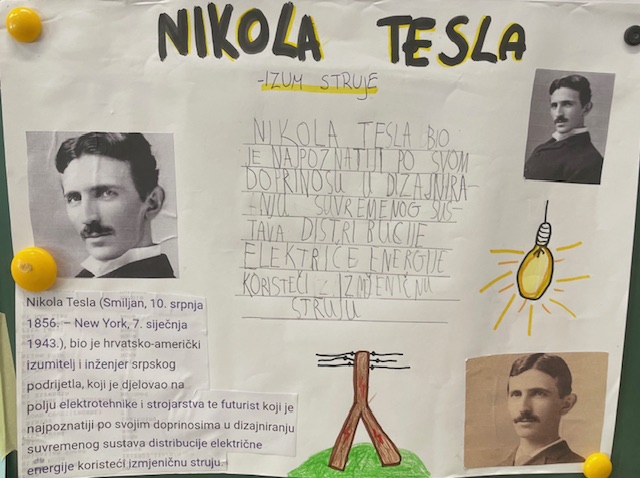 NIKOLA TESLA
-IZUM STRUJE
NIKOLA TESLA BIO
JE NAPOZNATIJI PO SVOM
DOPRINOSU U DIZAJNIRA-
-NJU SUVREMENOG SUS-
TAVA DISTRIBUCIJE
ELEKTRIČE ENERGIJE
KORISTEĆI IZMJENIČNU
STRUJU
Nikola Tesla (Smiljan, 10. srpnja
1856. – New York, 7. siječnja
1943.), bio je hrvatsko-američki
izumitelj i inženjer srpskog
podrijetla, koji je djelovao na
polju elektrotehnike i strojarstva te futurist koji je
najpoznatiji po svojim doprinosima u dizajniranju
suvremenog sustava distribucije električne
energije koristeći izmjeničnu struju.